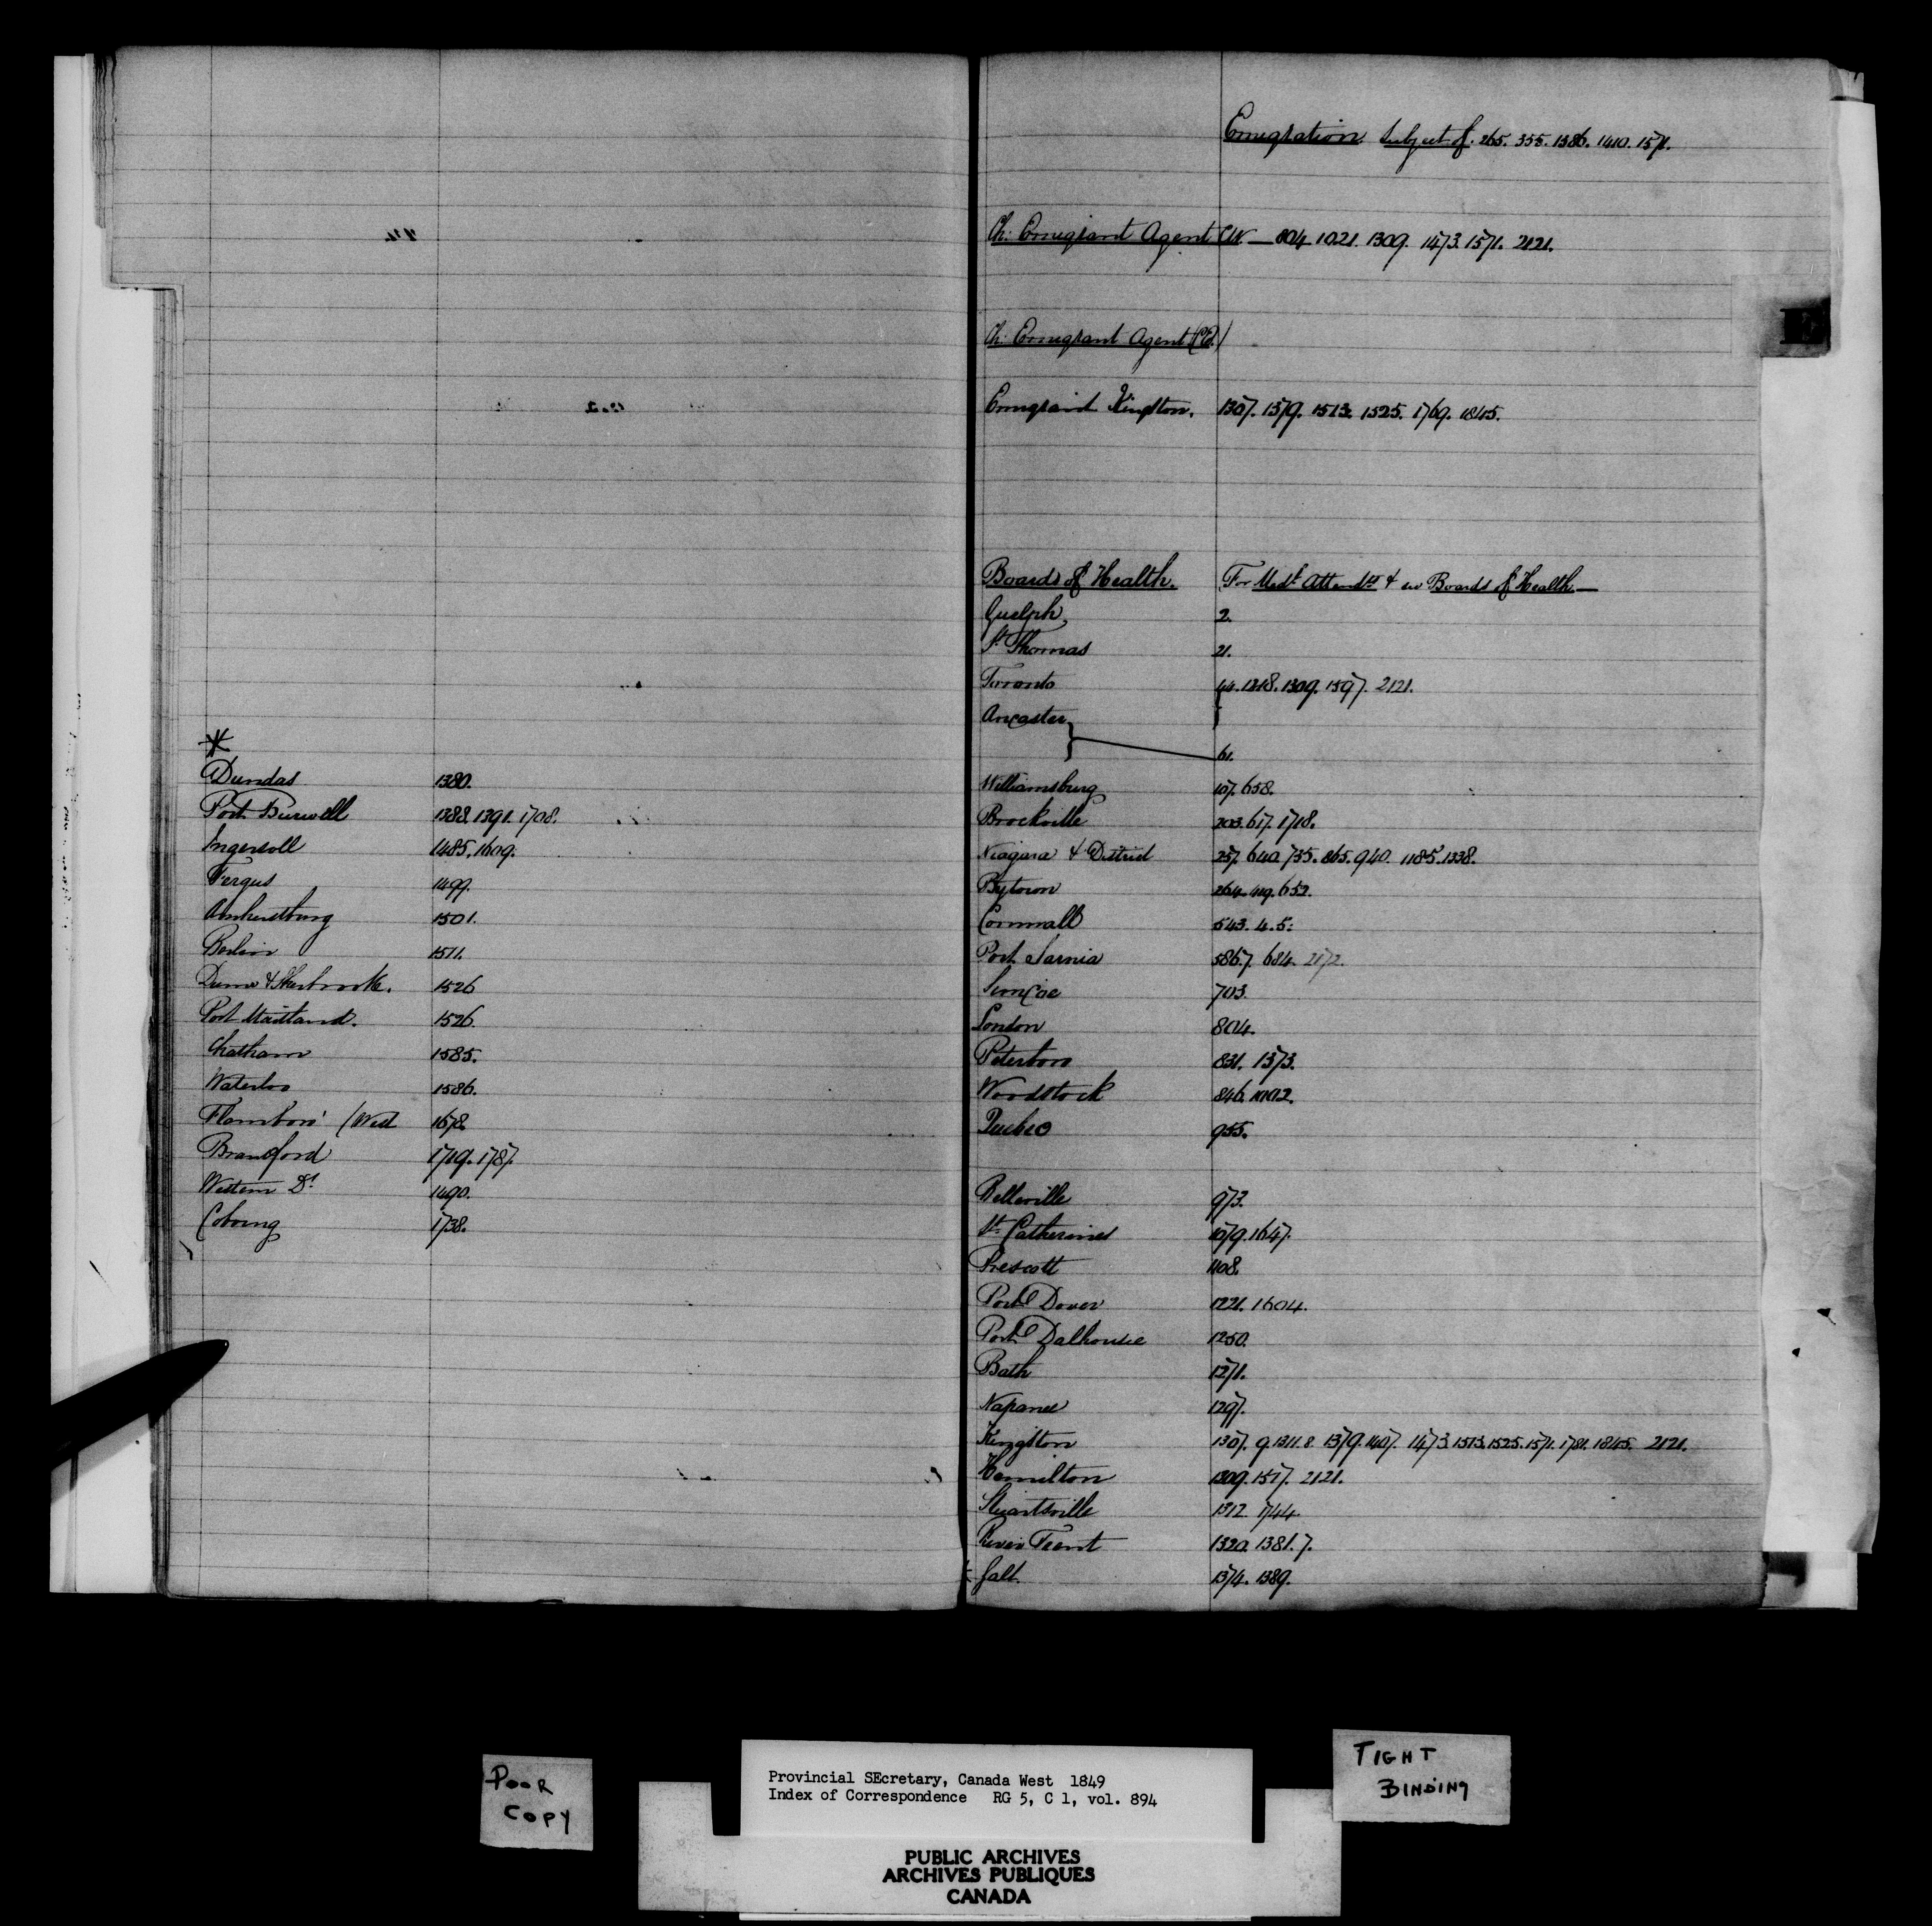 Dundas 1380.
Port Burwell 1388. 1391. 1708.
Ingersoll 1485. 1609.
Fergus 1499.
Amherstburg 1501.
Berlin 1511.
Dunn & Sherbrooke. 1526
Port Maitland. 1526.
Chatham 1585.
Waterloo 1586.
Flamboro' (West 1678.
Brantford 1719. 1787.
Western Dt 1490.
Cobourg 1738.
Emigration Subject of. 265. 355. 1386. 1410. 1571.
Ch: Emigrant Agent CW — 804. 1021. 1309. 1473. 1571. 2121.
Ch: Emigrant Agent (CE.)
Emigrant Kingston. 1307. 1379. 1513. 1525. 1769. 1845.
E
Boards of Health. For Medl. Attendts & see Boards of Health —
Guelph, 2.
St Thomas 21.
Toronto 44. 1318. 1309. 1597. 2121.
Ancaster
61.
Williamsburg 107. 658.
Brockville 203. 617. 1718.
Niagara & District 257. 640. 755. 865. 940. 1185. 1338.
Bytown 264. 419. 652.
Cornwall 543. 4. 5:
Port Sarnia 586.7. 684. 2172.
Simcoe 703.
London 804.
Peterboro 831. 1373.
Woodstock 846. 1002.
Quebec 955.
Belleville 973.
St. Catherines 1079. 1647.
Prescott 1108.
Port Dover 1221. 1604.
Port Dalhousie 1250.
Bath 1271.
Napanee 1297.
Kingston 1307. 9. 1311. 8. 1379. 1407. 1473. 1513. 1525. 1571. 1781. 1845. 2121.
Hamilton 1309. 1517. 2121.
Stuartsville 1312. 1744.
River Trent 1320. 1381. 7.
Galt. 1374. 1389.
POOR
COPY
Provincial SEcretary, Canada West 1849
Index of Correspondence RG 5, C 1, vol. 894
TIGHT
BINDING
PUBLIC ARCHIVES
ARCHIVES PUBLIQUES
CANADA